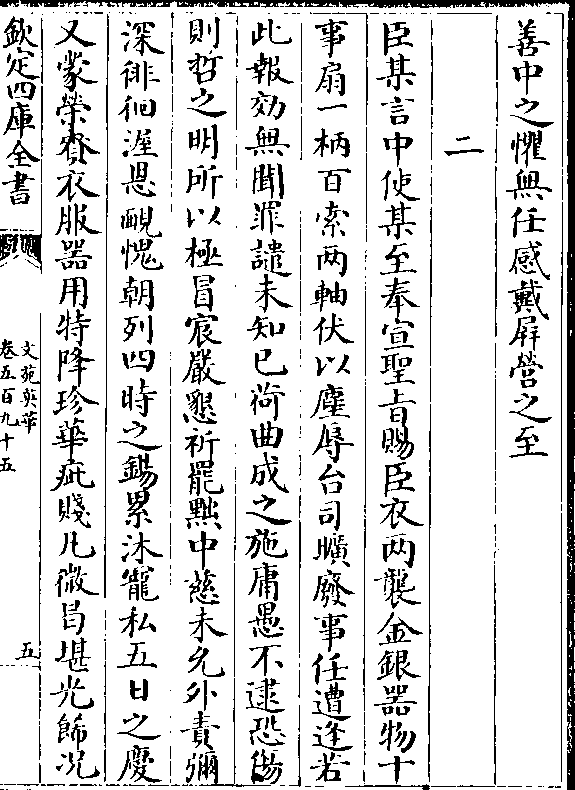 善中之懼無任感戴屛營之至
二
臣某言中使某至奉宣聖㫖賜臣衣两襲金銀器物十
事扇一柄百索两軸伏以塵辱台司曠廢事任遭逢若
此報効無聞罪譴未知已荷曲成之施庸愚不逮恐傷
則哲之明所以極冒宸嚴懇祈罷黜中慈未允外責彌
深徘徊渥恩靦愧朝列四時之錫累沐寵私五日之慶
又蒙榮賚衣服器用特降珍華疵賤凡微曷堪光飾况
欽定四庫全書
文苑英華
卷五百九十五
五